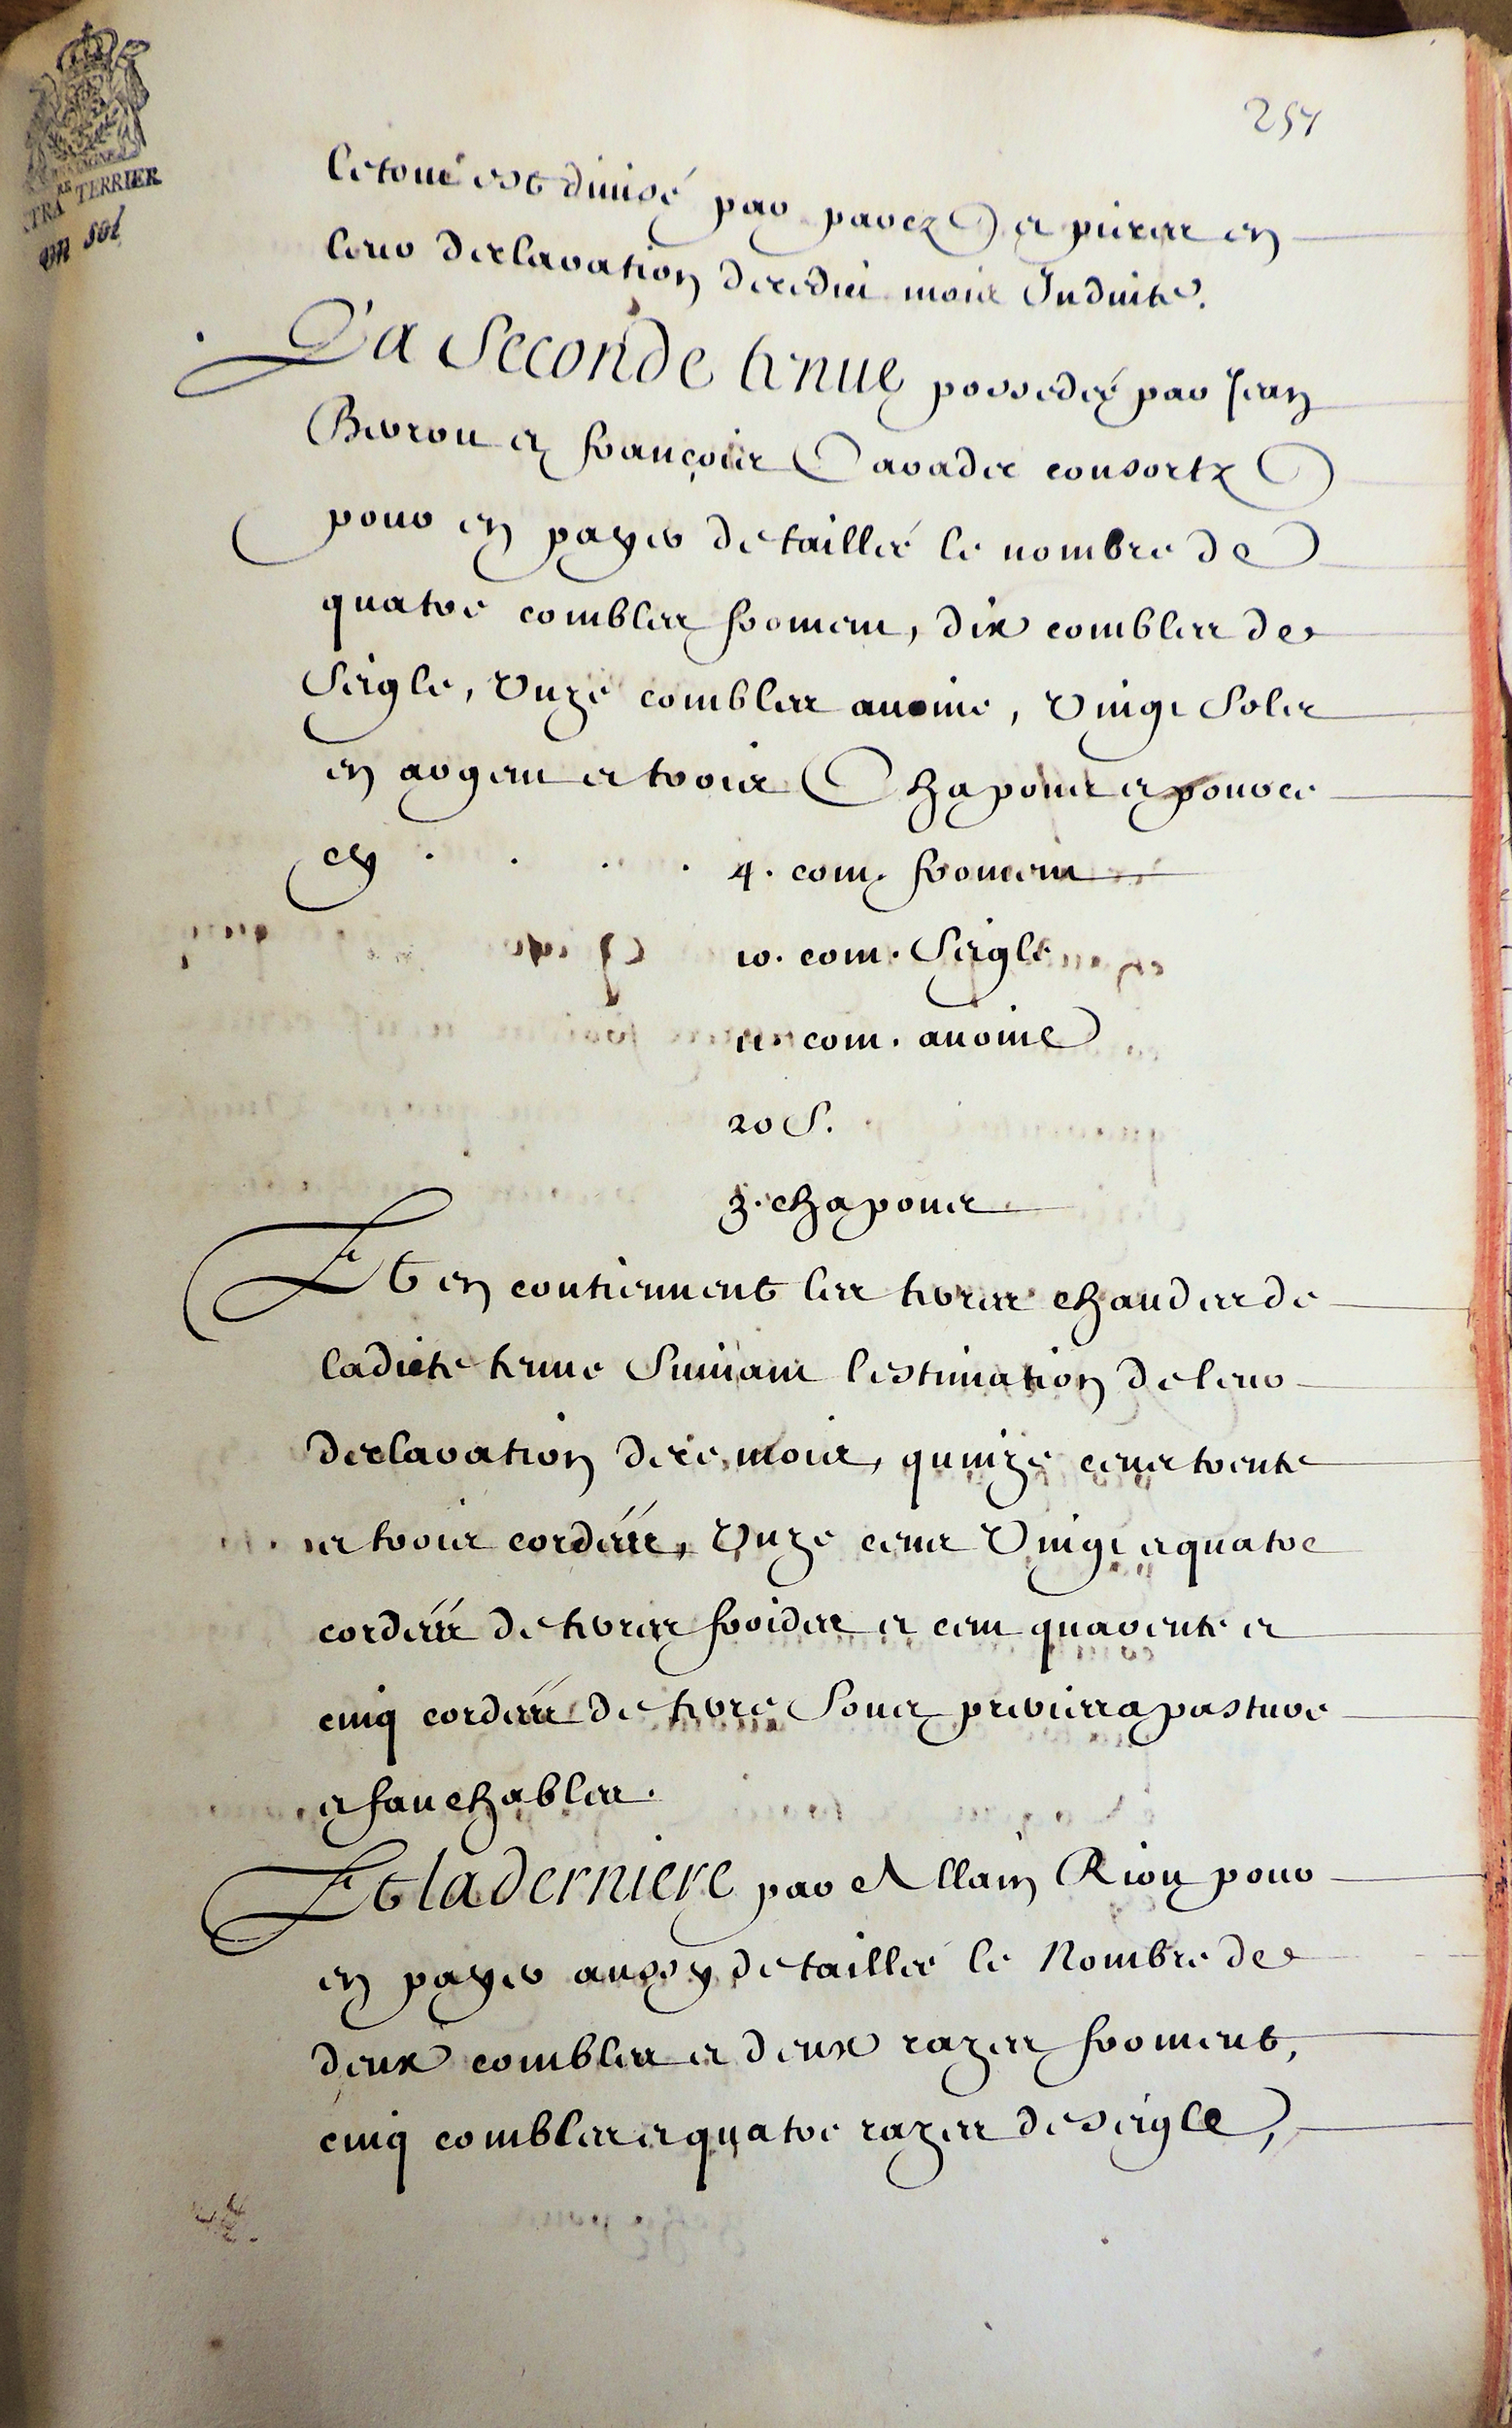 257
BRETAGNE
EXTRA RE TERRIER
un sol
le tout est divisé par parcz et pieces en
leur declaration de cedict mois Induite.
La Seconde tenue possedée par Jean
Berrou et françois Carades consortz
pour en payer de taillée le nombre de
quatre combles froment, dix combles de
Seigle, Unze combles auoine, Vingt Solz
en argent et trois Chapons et pource
cy . . . . 4. com. froment
10. com. Seigle
11. com. auoine
20 S.
3. chapons
Et en contiennent les terres chaudes de
ladicte tenue Suiuant lestimation de leur
declaration de ce mois, quinze cens trente
et trois cordées, Unze cens Vingt et quatre
cordées de terres froides et cent quarente et
cinq cordées de terre Soubz prairies a pasture
et fauchables.
Et la derniere par Allain Riou pour
en payer aussy de taillée le Nombre de
deux combles et deux razes froment,
cinq combles et quatre razes de seigle,